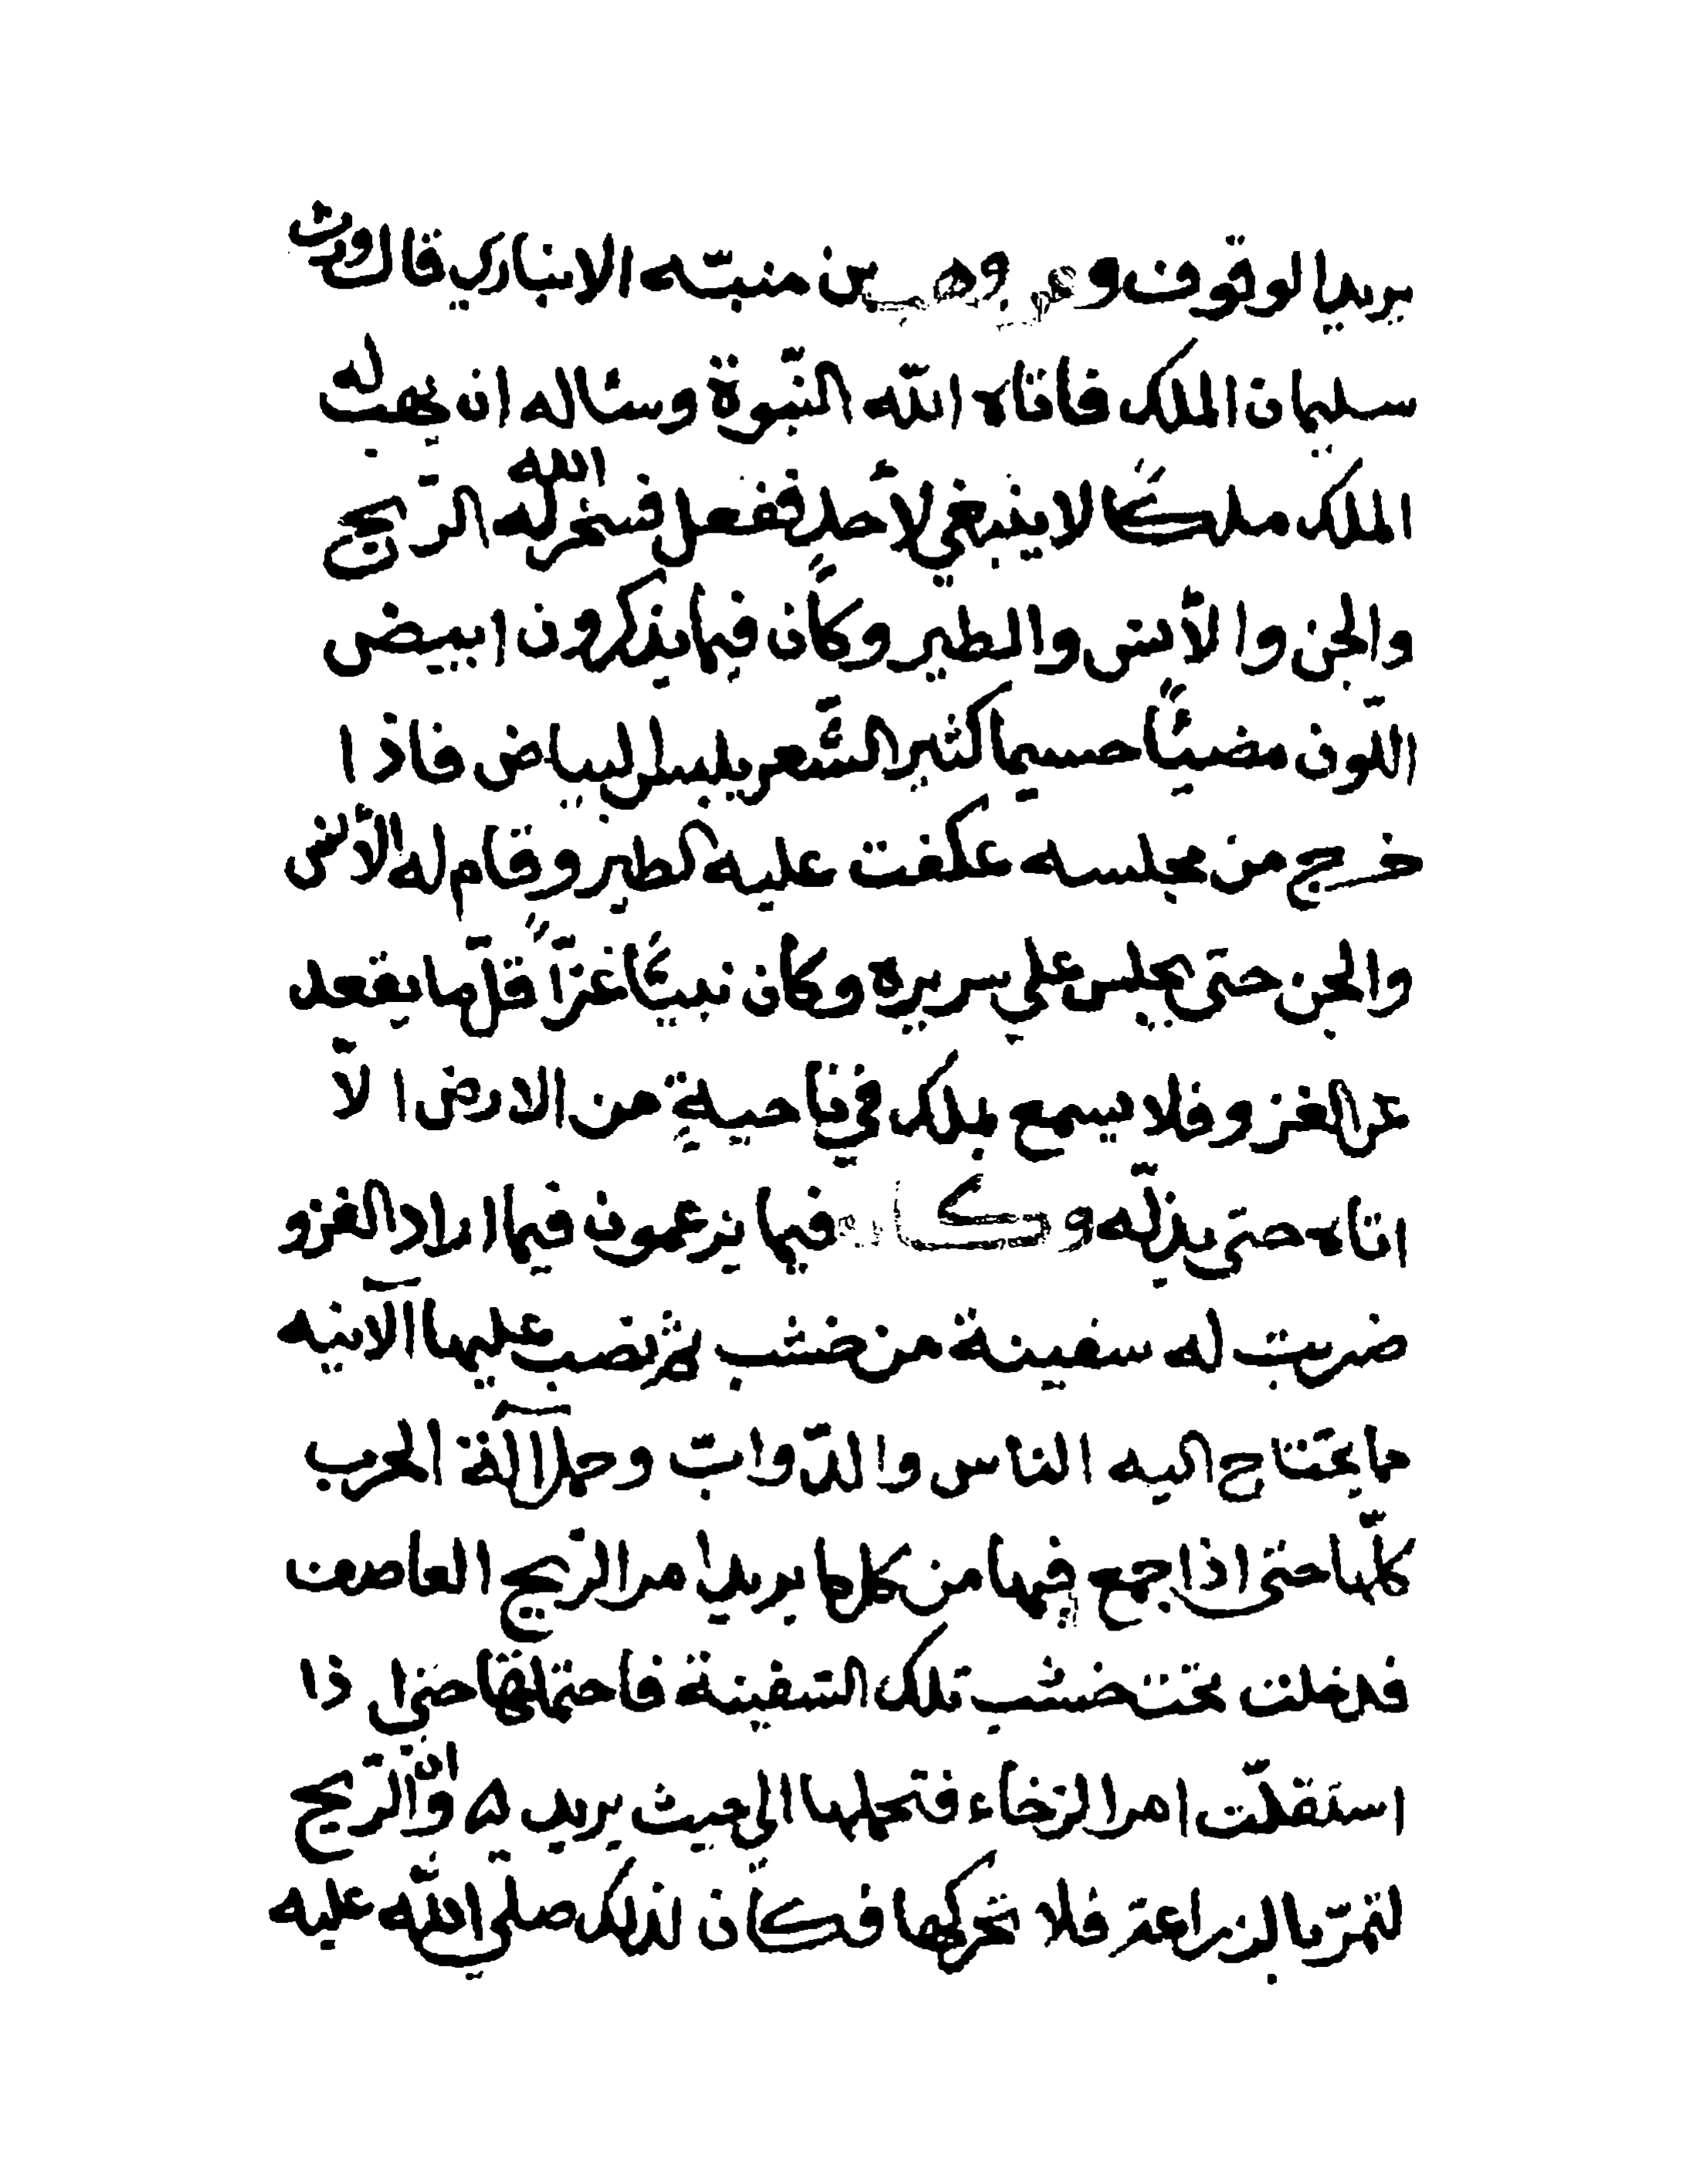 يريد الوقوف وعن وهب بن منبّه الانباري قال ورث
سليمان الملك فاتاه الله النبّوة وسأله ان يهب له
الملك ملكًا لا ينبغي لأحد ففعل فسخر الله له الرّيح
والجن والأنس والطير وكان فيما يذكرون ابيض
اللّون مضيئًا جسيما كثير الشّعر يلبس البياض فاذا
خرج من مجلسه عكفت عليه الطير وقام له الأنس
والجن حتى يجلس على سريره وكان نبيًّا غزّاً قلّ ما يقعد
عن الغزو فلا يسمع بملك في ناحيةٍ من الارض الاّ
اتاه حتى يذلّه وكان فيما يزعمون فيما اراد الغزو
ضربت له سفينة من خشب ثم نصب عليها الآنيه
ما يحتاج اليه الناس والدّوابّ وحمل آلة الحرب
كلّها حتى اذا جمع فيها من كل ما يريد امر الريح العاصف
فدخلت تحت خشب تلك السّفينة فاحتملتها حتى اذا
استقلّت امر الرخاء فتحملها الى حيث يريد ه وانّ الرّيح
لتمرّ بالزراعة فلا تحركها فكان لذلك صلى الله عليه